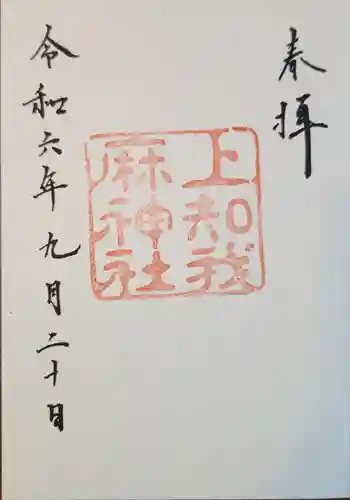 奉拝
上知我
麻神社
令和六年九月二十日